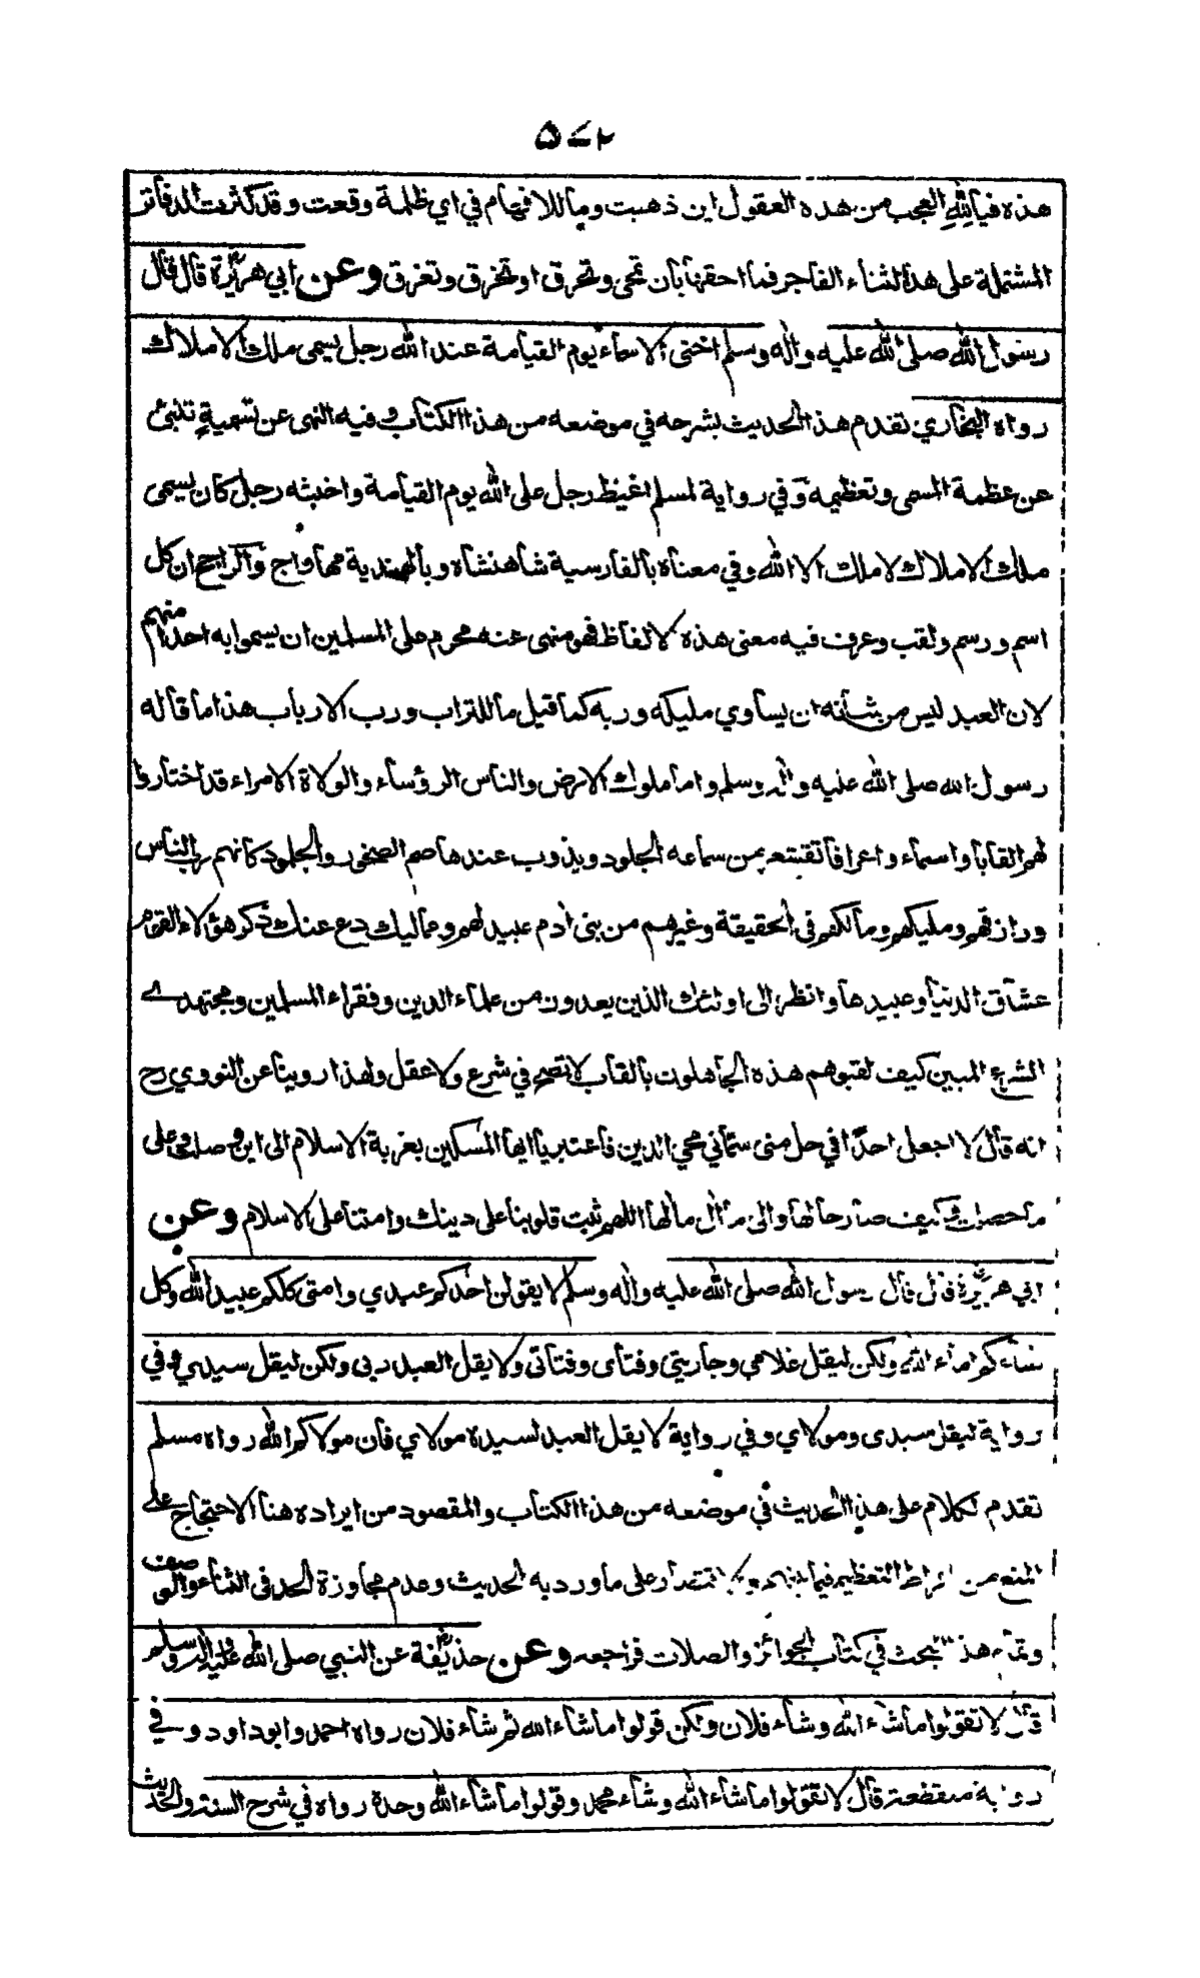 ٥٧٢
هذه فيا لله العجب من هذه العقول اين ذهبت وما للافهام في اي ظلمة وقعت وقد كثرت الدفاتر
المشتملة على هذا الثناء الفاجر فما احقها بان تمحى وتحرق او تخرق وتغرق وعن ابي هريرة قال قال
رسول الله صلى الله عليه واله وسلم اخنى الاسماء يوم القيامة عند الله رجل يسمى ملك الاملاك
رواه البخاري تقدم هذا الحديث بشرحه في موضعه من هذا الكتاب وفيه النهى عن تسمية تنبئ
عن عظمة المسمى وتعظيمه وفي رواية لمسلم اغيظ رجل على الله يوم القيامة واخبثه رجل كان يسمى
ملك الاملاك لا ملك الا الله وفي معناه بالفارسية شاهنشاه وبالهندية مهاراج والراجح ان كل
اسم ورسم ولقب وعرف فيه معنى هذه الالفاظ فهو منهى عنه محرم على المسلمين ان يسموا به احدا منهم
لان العبد ليس من شانه ان يساوي مليكه وربه كما قيل ما للتراب ورب الارباب هذا ما قاله
رسول الله صلى الله عليه واله وسلم واما ملوك الارض والناس الرؤساء والولاة الامراء قد اختاروا
لهم القابا واسماء واعرافا تقشعر من سماعه الجلود ويذوب عندها صم الصخور والجلمود كانهم رب الناس
ورازقهم ومليكهم ومالكهم في الحقيقة وغيرهم من بنى ادم عبيد لهم ومماليك دع عنك ذكر هؤلاء القوم
عشاق الدنيا وعبيدها وانظر الى اولئك الذين يعدون من علماء الدين وفقراء المسلمين ومجتهدے
الشرع المبين كيف لقبوهم هذه الجاهلون بالقاب لا تصح في شرع ولا عقل ولهذا روينا عن النووي رح
انه قال لا اجعل احدا في حل منى سماني محي الدين فاعتبر يا ايها المسكين بغربة الاسلام الى اين وصلت وعلى
ما حصلت وكيف صار حالها والى م ال مالها اللهم ثبت قلوبنا على دينك وامتنا على الاسلام وعن
ابي هريرة قال قال رسول الله صلى الله عليه واله وسلم لا يقولن احدكم عبدي وامتى كلكم عبيد الله وكل
نساءكم اماء الله ولكن ليقل غلامي وجاريتي وفتاى وفتاتى ولا يقل العبد ربى ولكن ليقل سيدي وفي
رواية ليقل سيدى ومولاي وفي رواية لا يقل العبد لسيده مولاي فان مولاكم الله رواه مسلم
تقدم الكلام على هذا الحديث في موضعه من هذا الكتاب والمقصود من ايراده هنا الاحتجاج على
المنع من افراط التعظيم فيما بينهم والاقتصار على ما ورد به الحديث وعدم مجاوزة الحد فى الثناء والوصف
وتمام هذا البحث في كتاب الجوائز والصلات فراجعه وعن حذيفة عن النبي صلى الله عليه واله وسلم
قال لا تقولوا ما شاء الله وشاء فلان ولكن قولوا ما شاء الله ثم شاء فلان رواه احمد وابو داود وفي
رواية منقطعة قال لا تقولوا ما شاء الله وشاء محمد وقولوا ما شاء الله وحدة رواه في شرح السنة والحديث